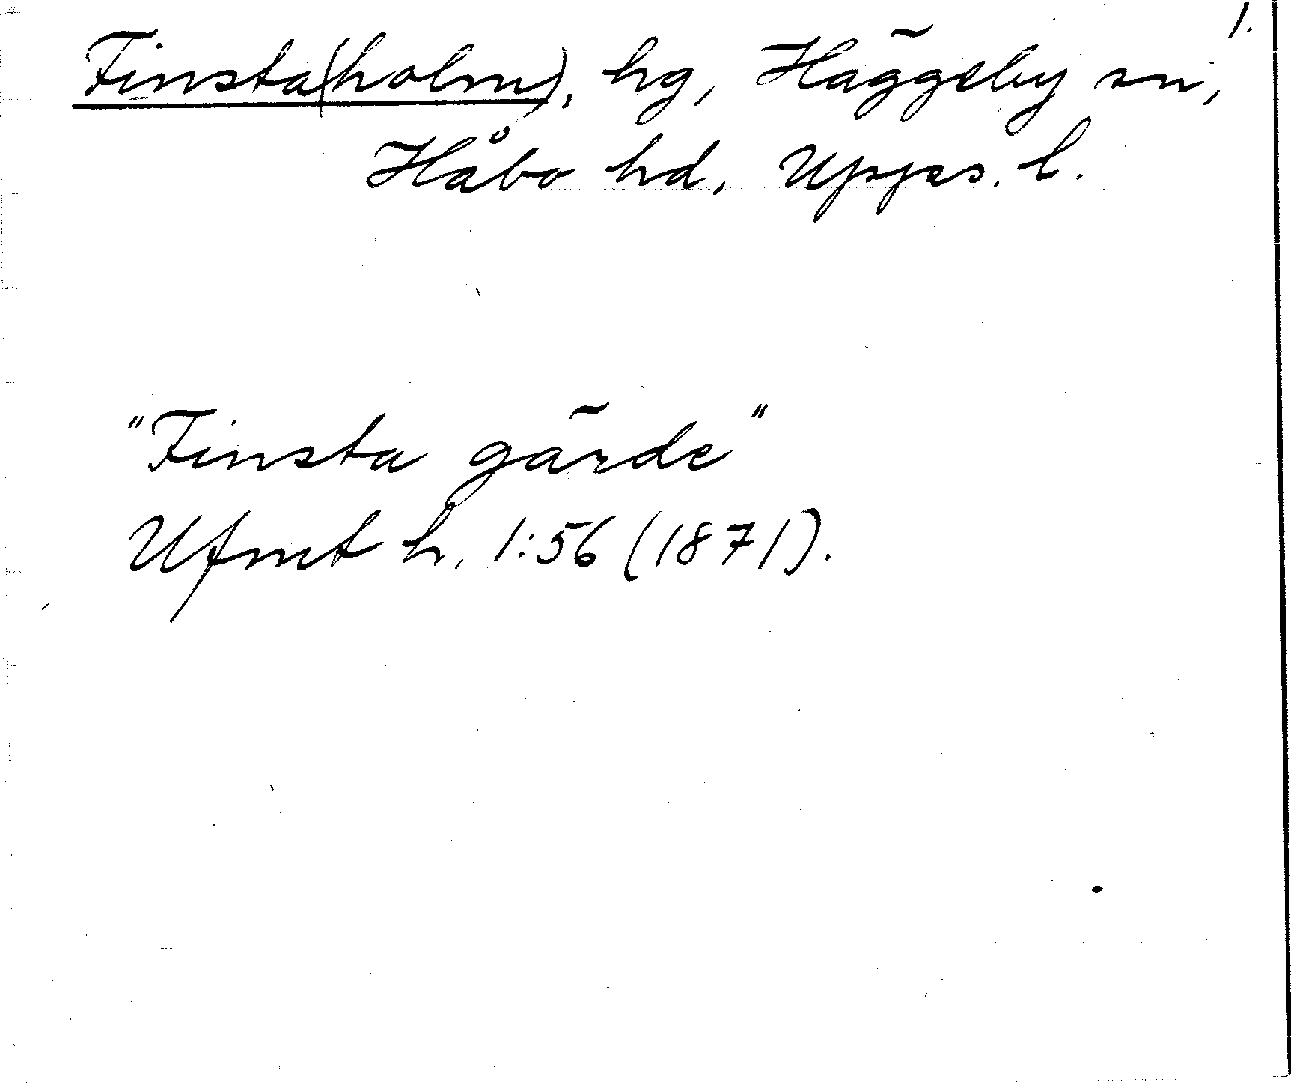 1.
Finsta(holm), hg, Häggeby sn,
Håbo hd, Upps. l.
"Finsta gärde"
Ufmt h. 1:56 (1871).